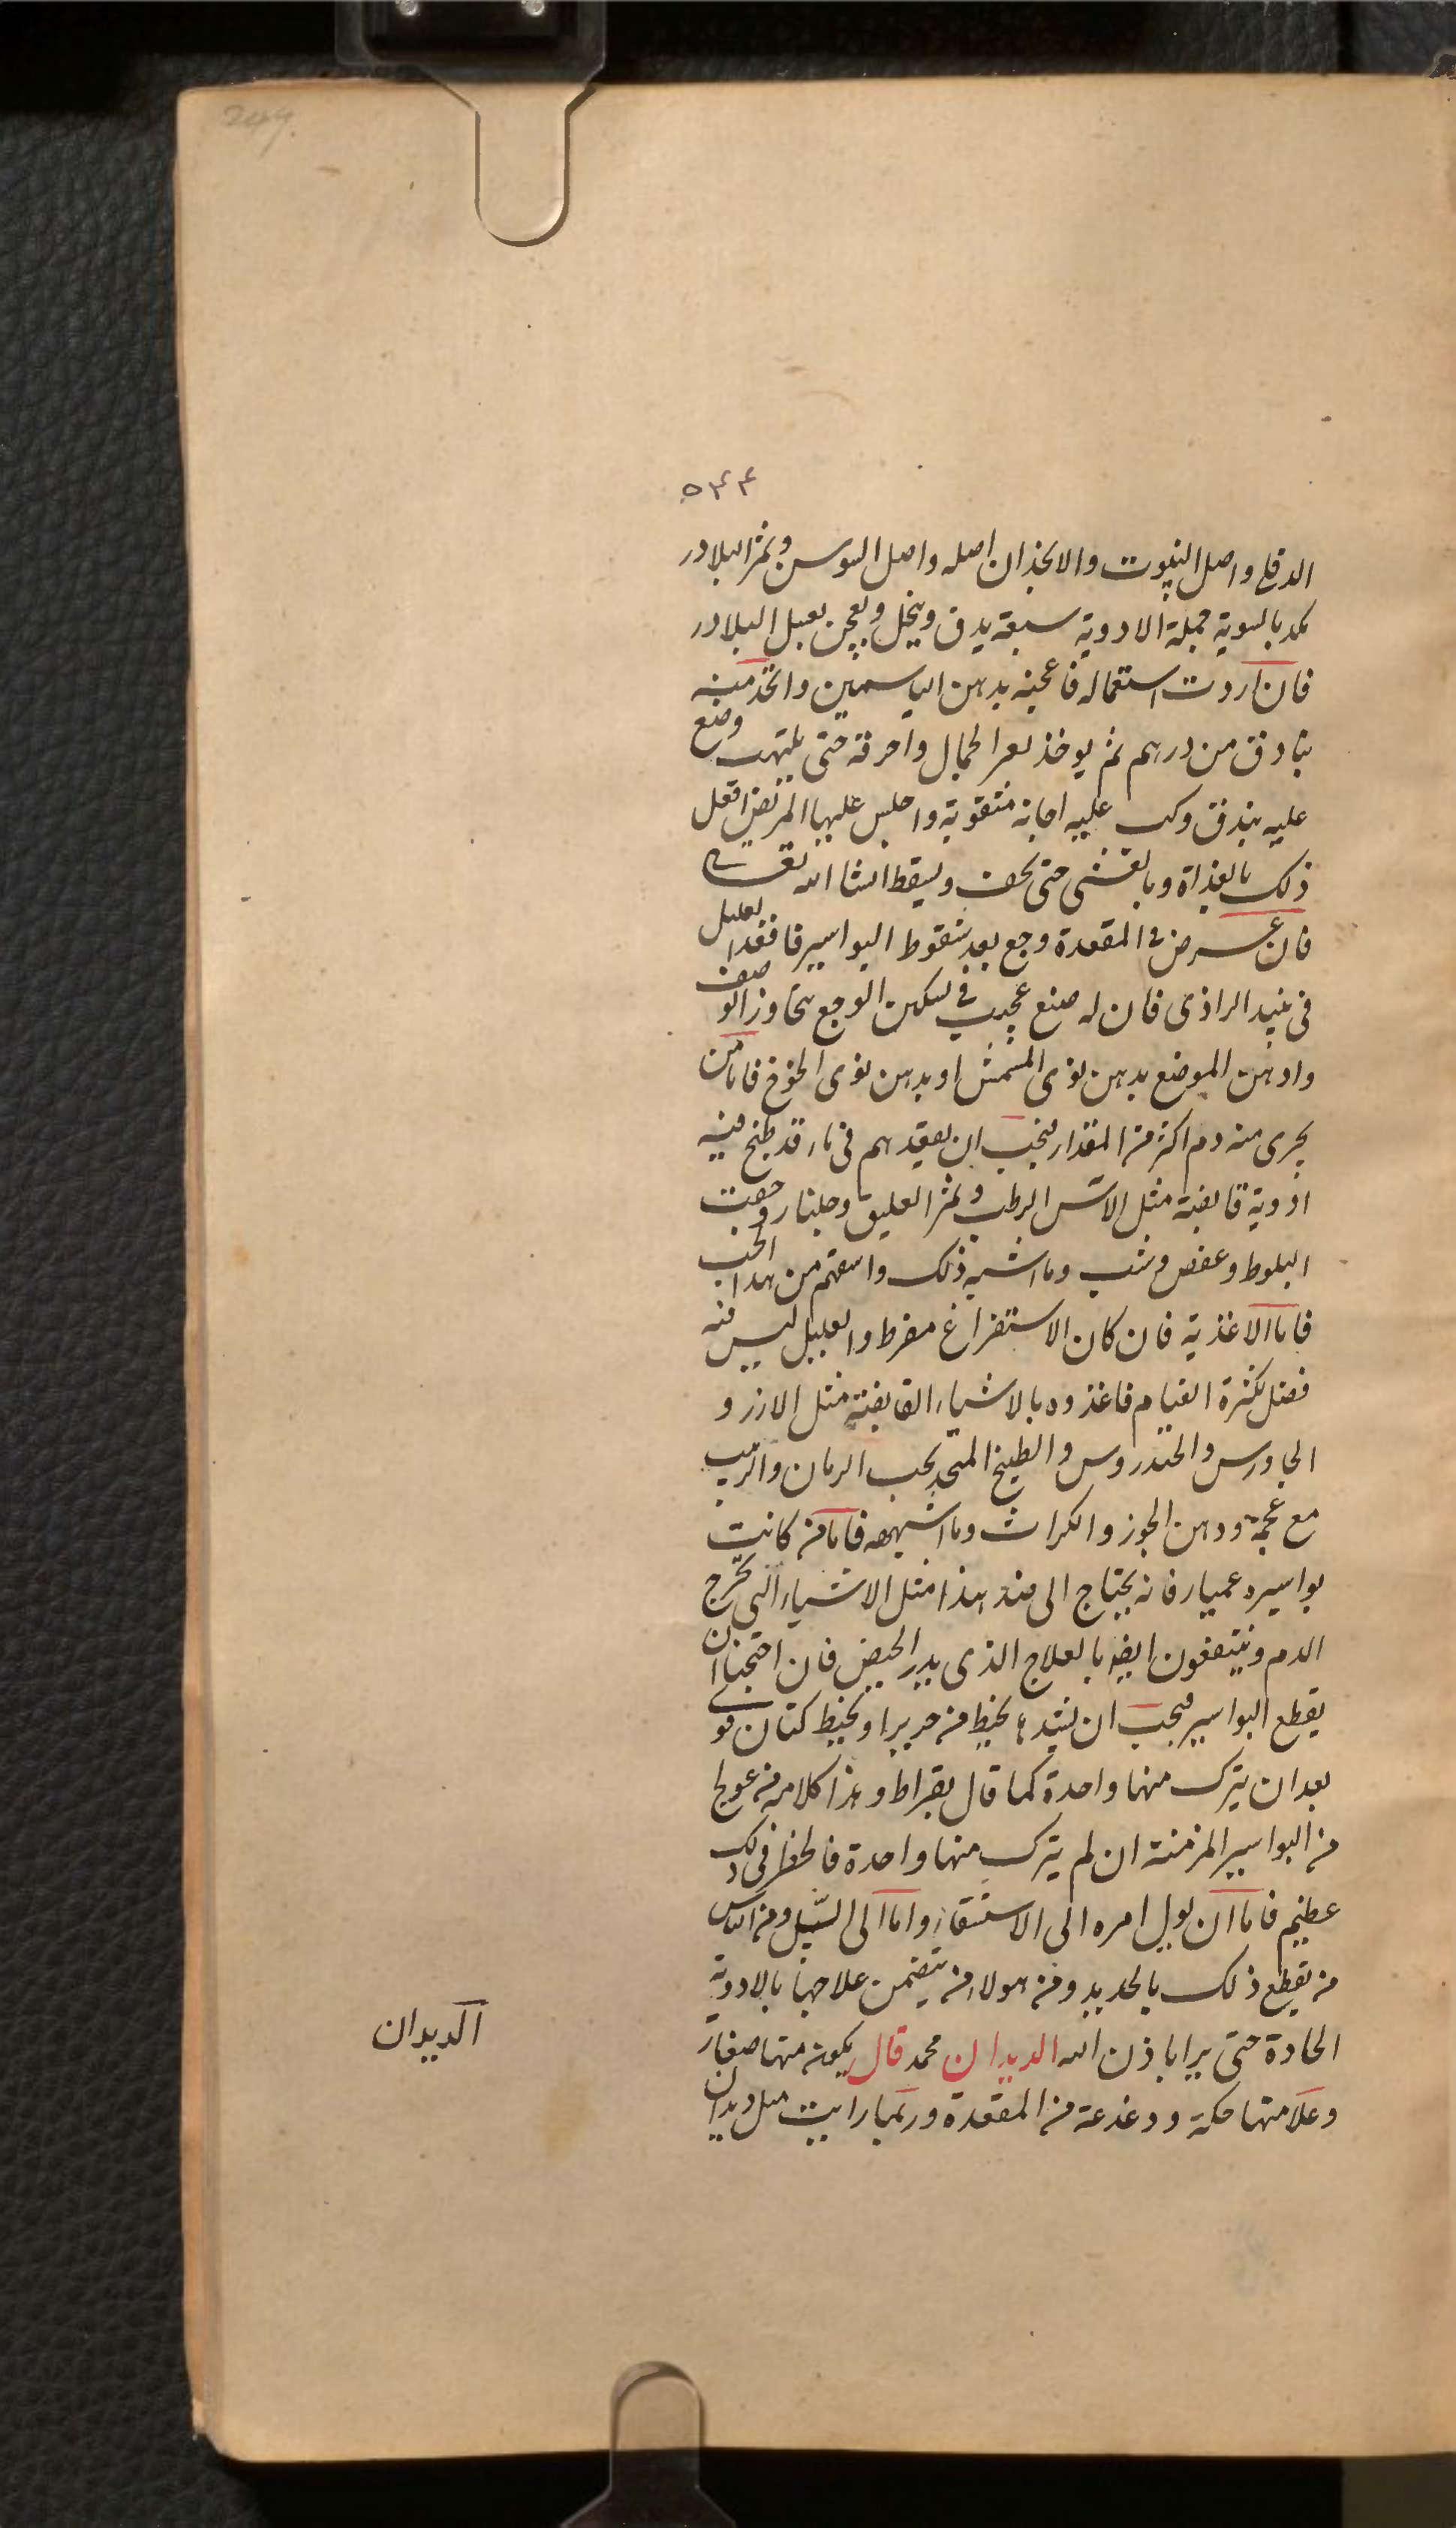 249
٥٣٤
الدفلي واصل الينبوت والانجذان اصله واصل السوسن وثمر البلادر
بالسوية جملة الادوية سبعة يدق وينخل ويعجن بعسل البلادر
فان اردت استعماله فاعجنه بدهن الياسمين واتخذ منه
بنادق من درهم ثم يوخذ بعر الجمال واحرقه حتى يلتهب وضع
عليه بندق وكب عليه اجانة مثقوبة واجلس عليها المريض افعل
ذلك بالغداة وبالعشى حتى يجف ويسقط انشا الله تعالى
فان عرض في المقعدة وجع بعد سقوط البواسير فاقعد العليل
في نبيد الراذى فان له صنع عجيب في تسكين الوجع يتجاوز الوصف
وادهن الموضع بدهن نوى المشمش او بدهن نوى الخوخ فاما من
يجرى منه دم اكثر من المقدار فيجب ان يعقدهم في ماء قد طبخ فيه
ادوية قابضة مثل الآس الرطب وثمر العليق وجلنار وجفت
البلوط وعفص وشب وما اشبه ذلك واسقهم من هذا الحب
فاما الاغذية فان كان الاستفراغ مفرط والعليل ليس منه
فضل لكثرة القيام فاغذوه بالاشياء القابضة مثل الارز و
الجاورس والخندروس والطبيخ المتخذ بحب الرمان والزبيب
مع عجمه ودهن الجوز والكراث وما اشبهه فاما من كانت
بواسيره عميا فانه يحتاج الى ضد هذا مثل الاشياء التي تخرج
الدم وينتفعون ايضا بالعلاج الذى يدر الحيض فان احتجنا ان
يقطع البواسير فيجب ان تشد بخيط من حرير او بخيط كتان قوى
بعد ان يترك منها واحدة كما قال بقراط وهذا كلامه من عولج
من البواسير المزمنة ان لم يترك منها واحدة فالخطر في ذلك
عظيم فاما ان يول امره الى الاستسقاء واما الى السل ومن الناس
من يقطع ذلك بالحديد ومن هولاء من يتضمن علاجها بالادوية
الحادة حتى يبرا باذن الله الديدان محمد قال يكون منها صغار
وعلامتها حكة ودغدغة من المقعدة وربما رايت مثل ديدان
الديدان